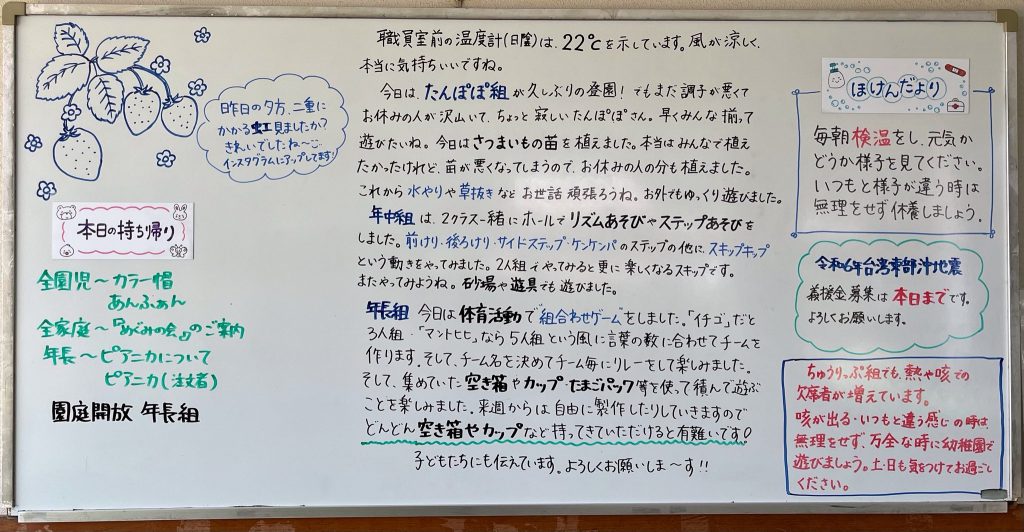 昨日の夕方、二重に
かかる虹見ましたか？
きれいでしたね〜♡
インスタグラムにアップしてます!
本日の持ち帰り
全園児〜カラー帽
あんふぁん
全家庭〜『めぐみの会』のご案内
年長〜ピアニカについて
ピアニカ(注文者)
園庭開放 年長組
職員室前の温度計(日陰)は、22℃を示しています。風が涼しく、
本当に気持ちいいですね。
今日は、たんぽぽ組が久しぶりの登園！でもまだ調子が悪くて
お休みの人が沢山いて、ちょっと寂しいたんぽぽさん。早くみんな揃って
遊びたいね。今日はさつまいもの苗を植えました。本当はみんなで植え
たかったけれど、苗が悪くなってしまうので、お休みの人の分も植えました。
これから水やりや草抜きなどお世話頑張ろうね。お外でもゆっくり遊びました。
年中組は、2クラス一緒にホールでリズムあそびやステップあそびを
しました。前けり・後ろけり・サイドステップ・ケンケンパのステップの他に、スキップキップ
という動きをやってみました。2人組でやってみると更に楽しくなるスキップです。
またやってみようね。砂場や遊具でも遊びました。
年長組 今日は体育活動で"組合わせゲーム"をしました。「イチゴ」だと
3人組・「マントヒヒ」なら5人組という風に言葉の数に合わせてチームを
作ります。そして、チーム名を決めてチーム毎にリレーをして楽しみました。
そして、集めていた空き箱やカップ・たまごパック等を使って積んで遊ぶ
ことを楽しみました。来週からは自由に製作したりしていきますので
どんどん空き箱やカップなど持ってきていただけると有難いです！
子どもたちにも伝えています。よろしくお願いしま〜す!!
ほけんだより
毎朝検温をし、元気か
どうか様子を見てください。
いつもと様子が違う時は
無理をせず休養しましょう。
令和6年台湾東部沖地震
義援金募集は本日までです。
よろしくお願いします。
ちゅうりっぷ組でも、熱や咳での
欠席者が増えています。
咳が出る・いつもと違う感じの時は、
無理をせず、万全な時に幼稚園で
遊びましょう。土・日も気をつけてお過ごし
ください。